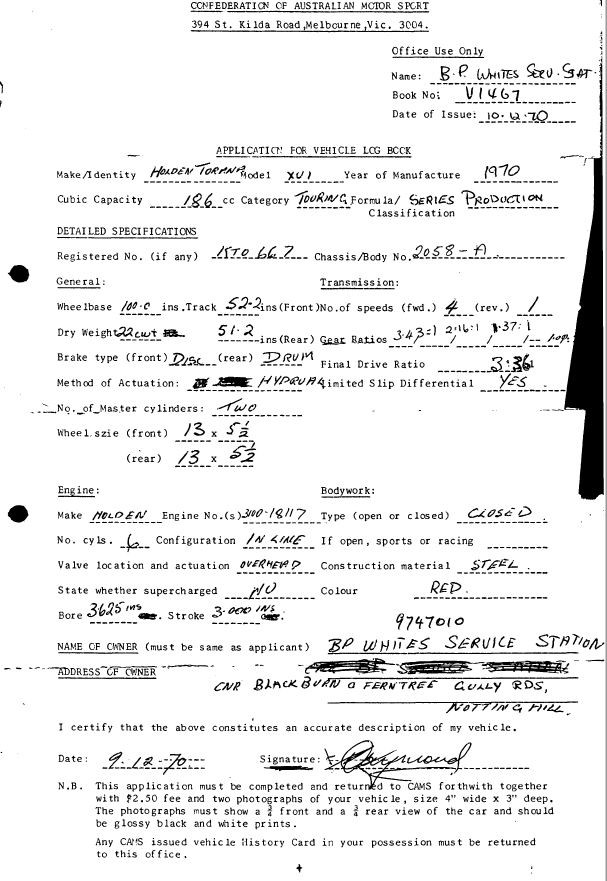 CONFEDERATION OF AUSTRALIAN MOTOR SPORT
394 St. Kilda Road, Melbourne, Vic. 3004.
Office Use Only
Name: B.P. WHITES SERV. STAT.
Book No: V1467
Date of Issue: 10.12.70
APPLICATION FOR VEHICLE LOG BOOK
Make/Identity HOLDEN TORANA Model XU1 Year of Manufacture 1970
Cubic Capacity 186 cc Category TOURING Formula/ SERIES PRODUCTION
Classification
DETAILED SPECIFICATIONS
Registered No. (if any) Chassis/Body No. 2058-A
General: Transmission:
Wheelbase 100.0 ins. Track 52.2 ins (Front) No. of speeds (fwd.) 4 (rev.) 1
Dry Weight 22 cwt 51.2 ins (Rear) Gear Ratios 3.43=1 / 2.16:1 / 1.37:1 /
Brake type (front) DISC (rear) DRUM Final Drive Ratio 3.36
Method of Actuation: Limited Slip Differential YES
No. of Master cylinders: TWO
Wheel szie (front) 13 x 5½
(rear) 13 x 5½
Engine: Bodywork:
Make HOLDEN Engine No.(s) 3100-18117 Type (open or closed) CLOSED
No. cyls. 6 Configuration IN LINE If open, sports or racing
Valve location and actuation OVERHEAD Construction material STEEL
State whether supercharged NO Colour RED.
Bore 3625 INS Stroke 3.000 INS.
9747010
NAME OF OWNER (must be same as applicant) BP WHITES SERVICE STATION
ADDRESS OF OWNER
CNR BLACKBURN & FERNTREE GULLY RDS,
NOTTING HILL.
I certify that the above constitutes an accurate description of my vehicle.
Date: 9.12.70 Signature:
N.B. This application must be completed and returned to CAMS forthwith together
with $2.50 fee and two photographs of your vehicle, size 4" wide x 3" deep.
The photographs must show a ¾ front and a ¾ rear view of the car and should
be glossy black and white prints.
Any CAMS issued vehicle History Card in your possession must be returned
to this office.